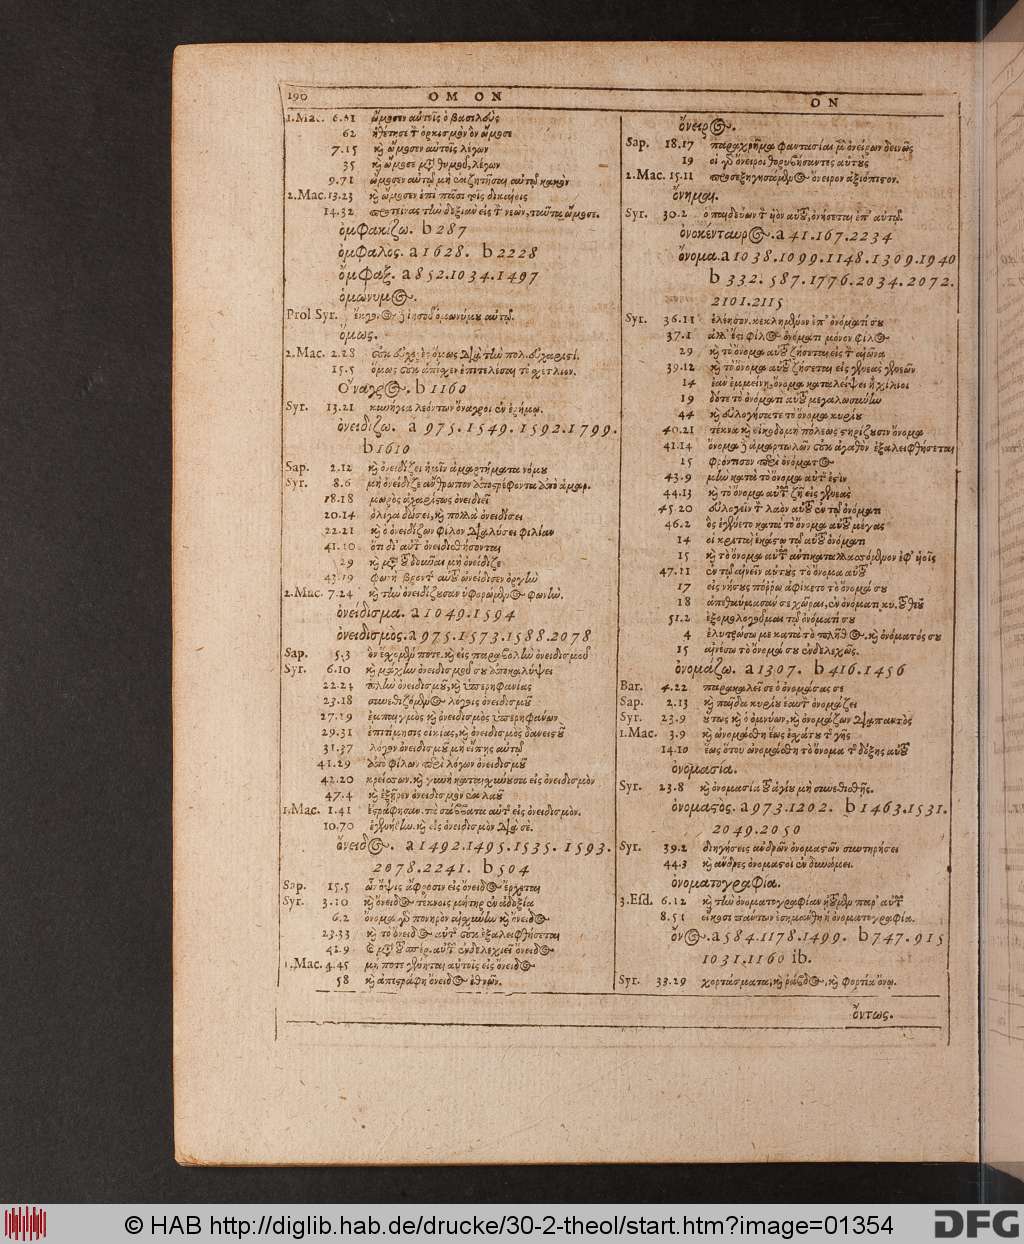 190
ΟΜ ΟΝ
1.Mac. 6.61 ὤμοσεν αὐτοῖς ὁ βασιλεὺς
62 ἠθέτησε τ ὁρκισμὸν ὃν ὤμοσε
7.15 καὶ ὤμοσεν αὐτοῖς λέγων
35 καὶ ὤμοσε μετὰ θυμοῦ, λέγων
9.71 ὤμοσεν αὐτῷ μὴ ἐκζητῆσαι αὐτῷ κακὸν
2.Mac. 13.23 καὶ ὤμοσεν ἐπὶ πᾶσι τοῖς δικαίοις
14.32 προτείνας τὴν δεξιὰν εἰς τ νεὼν, ταῦτα ὤμοσε.
ὀμφακίζω. b 287
ὀμφαλὸς. a 1628. b 2228
ὄμφαξ. a 852.1034.1497
ὁμώνυμος.
Prol Syr. ἰησοῦ ὁμωνύμου αὐτῷ.
ὅμως.
2.Mac. 2.28 οὐκ εὐχερὲς ὅμως διὰ τὴν πολ. εὐχαριστί.
15.5 ὅμως οὐκ ἐπιτελέσαι τὸ σχέτλιον.
Ὄναγρος. b 1160
Syr. 13.21 κυνήγια λεόντων ὄναγροι ἐν ἐρήμῳ.
ὀνειδίζω. a 975.1549.1592.1799.
b 1610
Sap. 2.12 καὶ ὀνειδίζει ἡμῖν ἁμαρτήματα νόμου
Syr. 8.6 μὴ ὀνείδιζε ἄνθρωπον ἀποστρέφοντα ἀπὸ ἁμαρ.
18.18 μωρὸς ἀχαρίστως ὀνειδιεῖ
20.14 ὀλίγα δώσει, καὶ πολλὰ ὀνειδίσει
22.21 καὶ ὁ ὀνειδίζων φίλον διαλύσει φιλίαν
41.10 ὅτι δι' αὐτ ὀνειδισθήσονται
29 καὶ μετὰ τὸ δοῦναι μὴ ὀνείδιζε
43.19 φωνὴ βροντ αὐτοῦ ὠνείδισεν
2.Mac. 7.24 καὶ τὴν ὀνειδίζουσαν ὑφορώμενος φωνὴν.
ὀνείδισμα. a 1049.1594
ὀνειδισμὸς. a 975.1573.1588.2078
Sap. 5.3 ὃν ἔσχομεν ποτε καὶ εἰς παραβολὴν ὀνειδισμοῦ
Syr. 6.10 καὶ μάχην ὀνειδισμοῦ σου ἀποκαλύψει
22.24 ὀνειδισμοῦ, καὶ ὑπερηφανίας
23.18 συνεθιζόμενος λόγοις ὀνειδισμοῦ
27.19 ἐμπαιγμὸς καὶ ὀνειδισμὸς ὑπερηφάνων
29.31 ἐπιτίμησις οἰκίας, καὶ ὀνειδισμὸς δανειστοῦ
31.37 λόγον ὀνειδισμοῦ μὴ εἴπῃς αὐτῷ
41.29 ἀπὸ φίλων περὶ λόγων ὀνειδισμοῦ
42.20 κρείσσων. καὶ γυνὴ καταισχύνουσα εἰς ὀνειδισμὸν
47.4 καὶ ἐξῆρεν ὀνειδισμὸν ἐκ λαοῦ
1.Mac. 1.41 ἐστράφησαν. τὰ σάββατα αὐτ εἰς ὀνειδισμὸν.
10.70 ἐγενήθην. καὶ εἰς ὀνειδισμὸν διὰ σὲ.
ὄνειδος. a 1492.1495.1535. 1593.
2078.2241. b 504
Sap. 15.5 ὧν ὄψις ἄφροσιν εἰς ὄνειδος ἔρχεται
Syr. 3.10 καὶ ὄνειδος τέκνοις μήτηρ ἐν ἀδοξίᾳ
6.2 ὄνομα γὰρ πονηρὸν αἰσχύνην καὶ ὄνειδος
23.33 καὶ τὸ ὄνειδος αὐτ οὐκ ἐξαλειφθήσεται
41.9 ἐνδελεχιεῖ ὄνειδος
1.Mac. 4.45 μή ποτε γένηται αὐτοῖς εἰς ὄνειδος
58 καὶ ἀπεστράφη ὄνειδος ἐθνῶν.
ΟΝ
ὄνειρος.
Sap. 18.17 παραχρῆμα φαντασίαι μὲν ὀνείρων δεινῶς
19 οἱ γὰρ ὄνειροι θορυβήσαντες αὐτοὺς
2.Mac. 15.11 προσεξηγησάμενος ὄνειρον ἀξιόπιστον.
ὄνημαι.
Syr. 30.2 ὁ παιδεύων τ υἱὸν αὐτοῦ, ὀνήσεται ἐπ' αὐτῷ.
ὀνοκένταυρος. a 41.167.2234
ὄνομα. a 1038.1099.1148.1309.1940
b 332. 587.1776.2034.2072.
2101.2115
Syr. 36.11 ἐλέησον. κεκλημένον ἐπ' ὀνόματί σου
37.1 ἀλλ' ἔστι φίλος ὀνόματι μόνον φίλος
29 καὶ τὸ ὄνομα αὐτοῦ ζήσεται εἰς τ αἰῶνα
39.12 καὶ τὸ ὄνομα αὐτοῦ ζήσεται εἰς γενεὰς γενεῶν
14 ἐὰν ἐμμείνῃ, ὄνομα καταλείψει ἢ χίλιοι
19 δότε τῷ ὀνόματι αὐτοῦ μεγαλωσύνην
44 καὶ εὐλογήσατε τὸ ὄνομα κυρίου
40.21 τέκνα καὶ οἰκοδομὴ πόλεως στηρίζουσιν ὄνομα
41.14 ὄνομα ἁμαρτωλῶν οὐκ ἀγαθὸν ἐξαλειφθήσεται
15 φρόντισον περὶ ὀνόματος
43.9 μὴν κατὰ τὸ ὄνομα αὐτ ἐστιν
44.13 καὶ τὸ ὄνομα αὐτῶν ζῇ εἰς γενεὰς
45.20 εὐλογεῖν τ λαὸν αὐτοῦ ἐν τῷ ὀνόματι
46.2 ὃς ἐγένετο κατὰ τὸ ὄνομα αὐτοῦ μέγας
14 οἱ κριταὶ ἑκάστῳ τῷ αὐτοῦ ὀνόματι
15 καὶ τὸ ὄνομα αὐτῶν ἀντικαταλλασσόμενον ἐφ' υἱοῖς
47.11 ἐν τῷ αἰνεῖν αὐτοὺς τὸ ὄνομα αὐτοῦ
17 εἰς νήσους πόρρω ἀφίκετο τὸ ὄνομά σου
18 ἀπεθαύμασάν σε χῶραι, ἐν ὀνόματι κυ. τοῦ θεοῦ
51.2 ἐξομολογοῦμαι τῷ ὀνόματί σου
4 ἐλυτρώσω με κατὰ τὸ πλῆθος. καὶ ὀνόματός σου
15 αἰνέσω τὸ ὄνομά σου ἐνδελεχῶς.
ὀνομάζω. a 1307. b 416.1456
Bar. 4.22 παρακαλεῖ σε ὁ ὀνομάσας σε
Sap. 2.13 καὶ παῖδα κυρίου ἑαυτὸν ὀνομάζει
Syr. 23.9 οὕτως καὶ ὁ ὀμνύων, καὶ ὀνομάζων διαπαντὸς
1.Mac. 3.9 καὶ ὠνομάσθη ἕως ἐσχάτου τῆς γῆς
14.10 ἕως ὅτου ὠνομάσθη τὸ ὄνομα τῆς δόξης αὐτοῦ
ὀνομασία.
Syr. 23.8 καὶ ὀνομασίᾳ τοῦ ἁγίου μὴ συνεθισθῇς.
ὀνομαστὸς. a 973.1202. b 1463.1531.
2049.2050
Syr. 39.2 διηγήσεις ἀνδρῶν ὀνομαστῶν συντηρήσει
44.3 καὶ ἄνδρες ὀνομαστοὶ ἐν δυνάμει.
ὀνοματογραφία.
3.Esd. 6.12 καὶ τὴν ὀνοματογραφίαν ᾐτοῦμεν παρ' αὐτῶν
8.51 εἴκοσι πάντων ἐσημάνθη ἡ ὀνοματογραφία.
ὄνος. a 584.1178.1499. b 747.915
1031.1160 ib.
Syr. 33.29 χορτάσματα, καὶ ῥάβδος, καὶ φορτία ὄνῳ.
ὄντως.
© HAB http://diglib.hab.de/drucke/30-2-theol/start.htm?image=01354
DFG